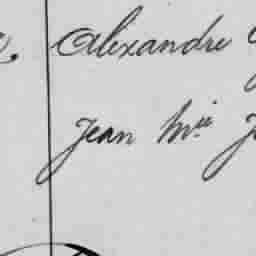 Alexandre
Jean Mie